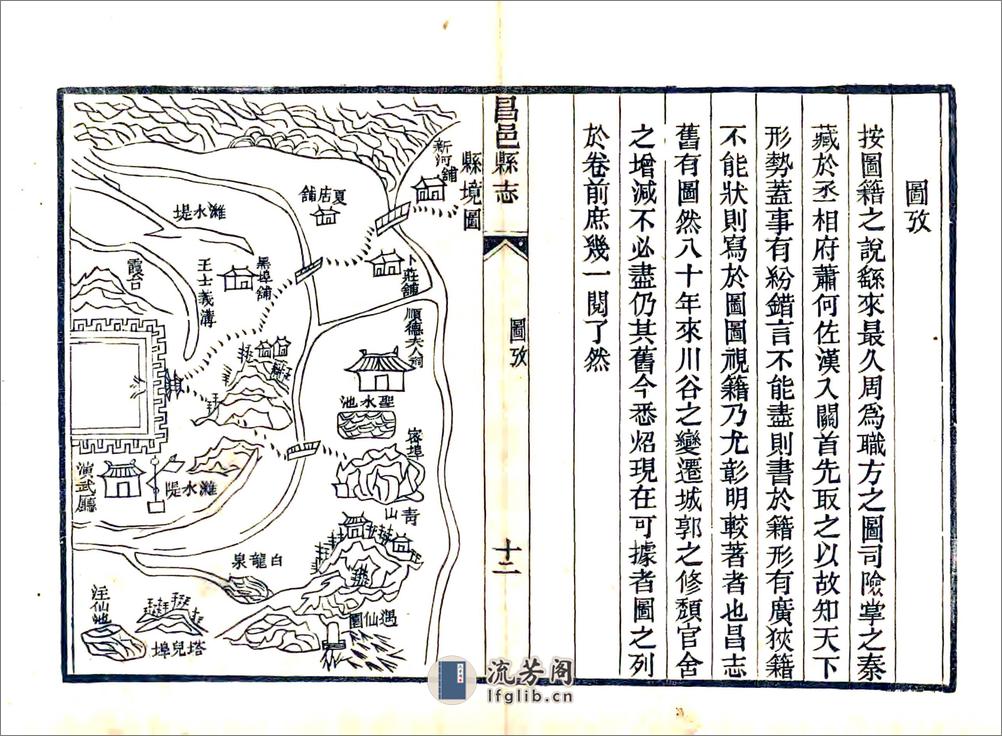 圖攷
按圖籍之說繇來最久周為職方之圖司險掌之秦
藏於丞相府蕭何佐漢入關首先取之以故知天下
形勢蓋事有紛錯言不能盡則書於籍形有廣狹籍
不能狀則寫於圖圖視籍乃尤彰明較著者也昌志
舊有圖然八十年來川谷之變遷城郭之修頹官舍
之增減不必盡仍其舊今悉炤現在可據者圖之列
於卷前庶幾一閱了然
昌邑縣志
圖攷
十二
縣境圖
新河舖
夏店舖
濰水堤
卜莊舖
黑埠舖
王士義溝
霞台
順德夫人祠
聖水池
密埠
青山
濰水堤
演武廳
白龍泉
遇仙園
塔兒埠
汪仙池
流芳阁
lfglib.cn